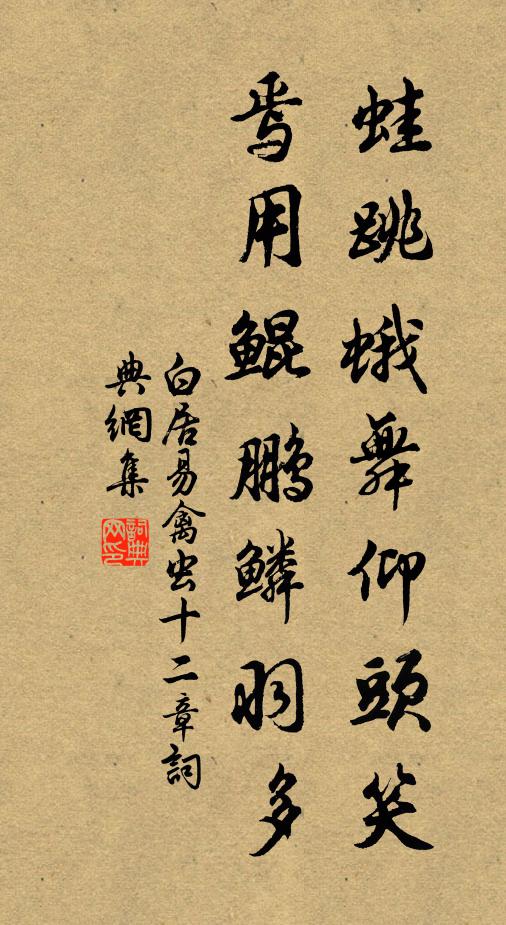 蛙跳蛾舞仰頭笑
焉用鯤鵬鱗羽多
白居易禽虫十二章詞
典網集
詞典網印